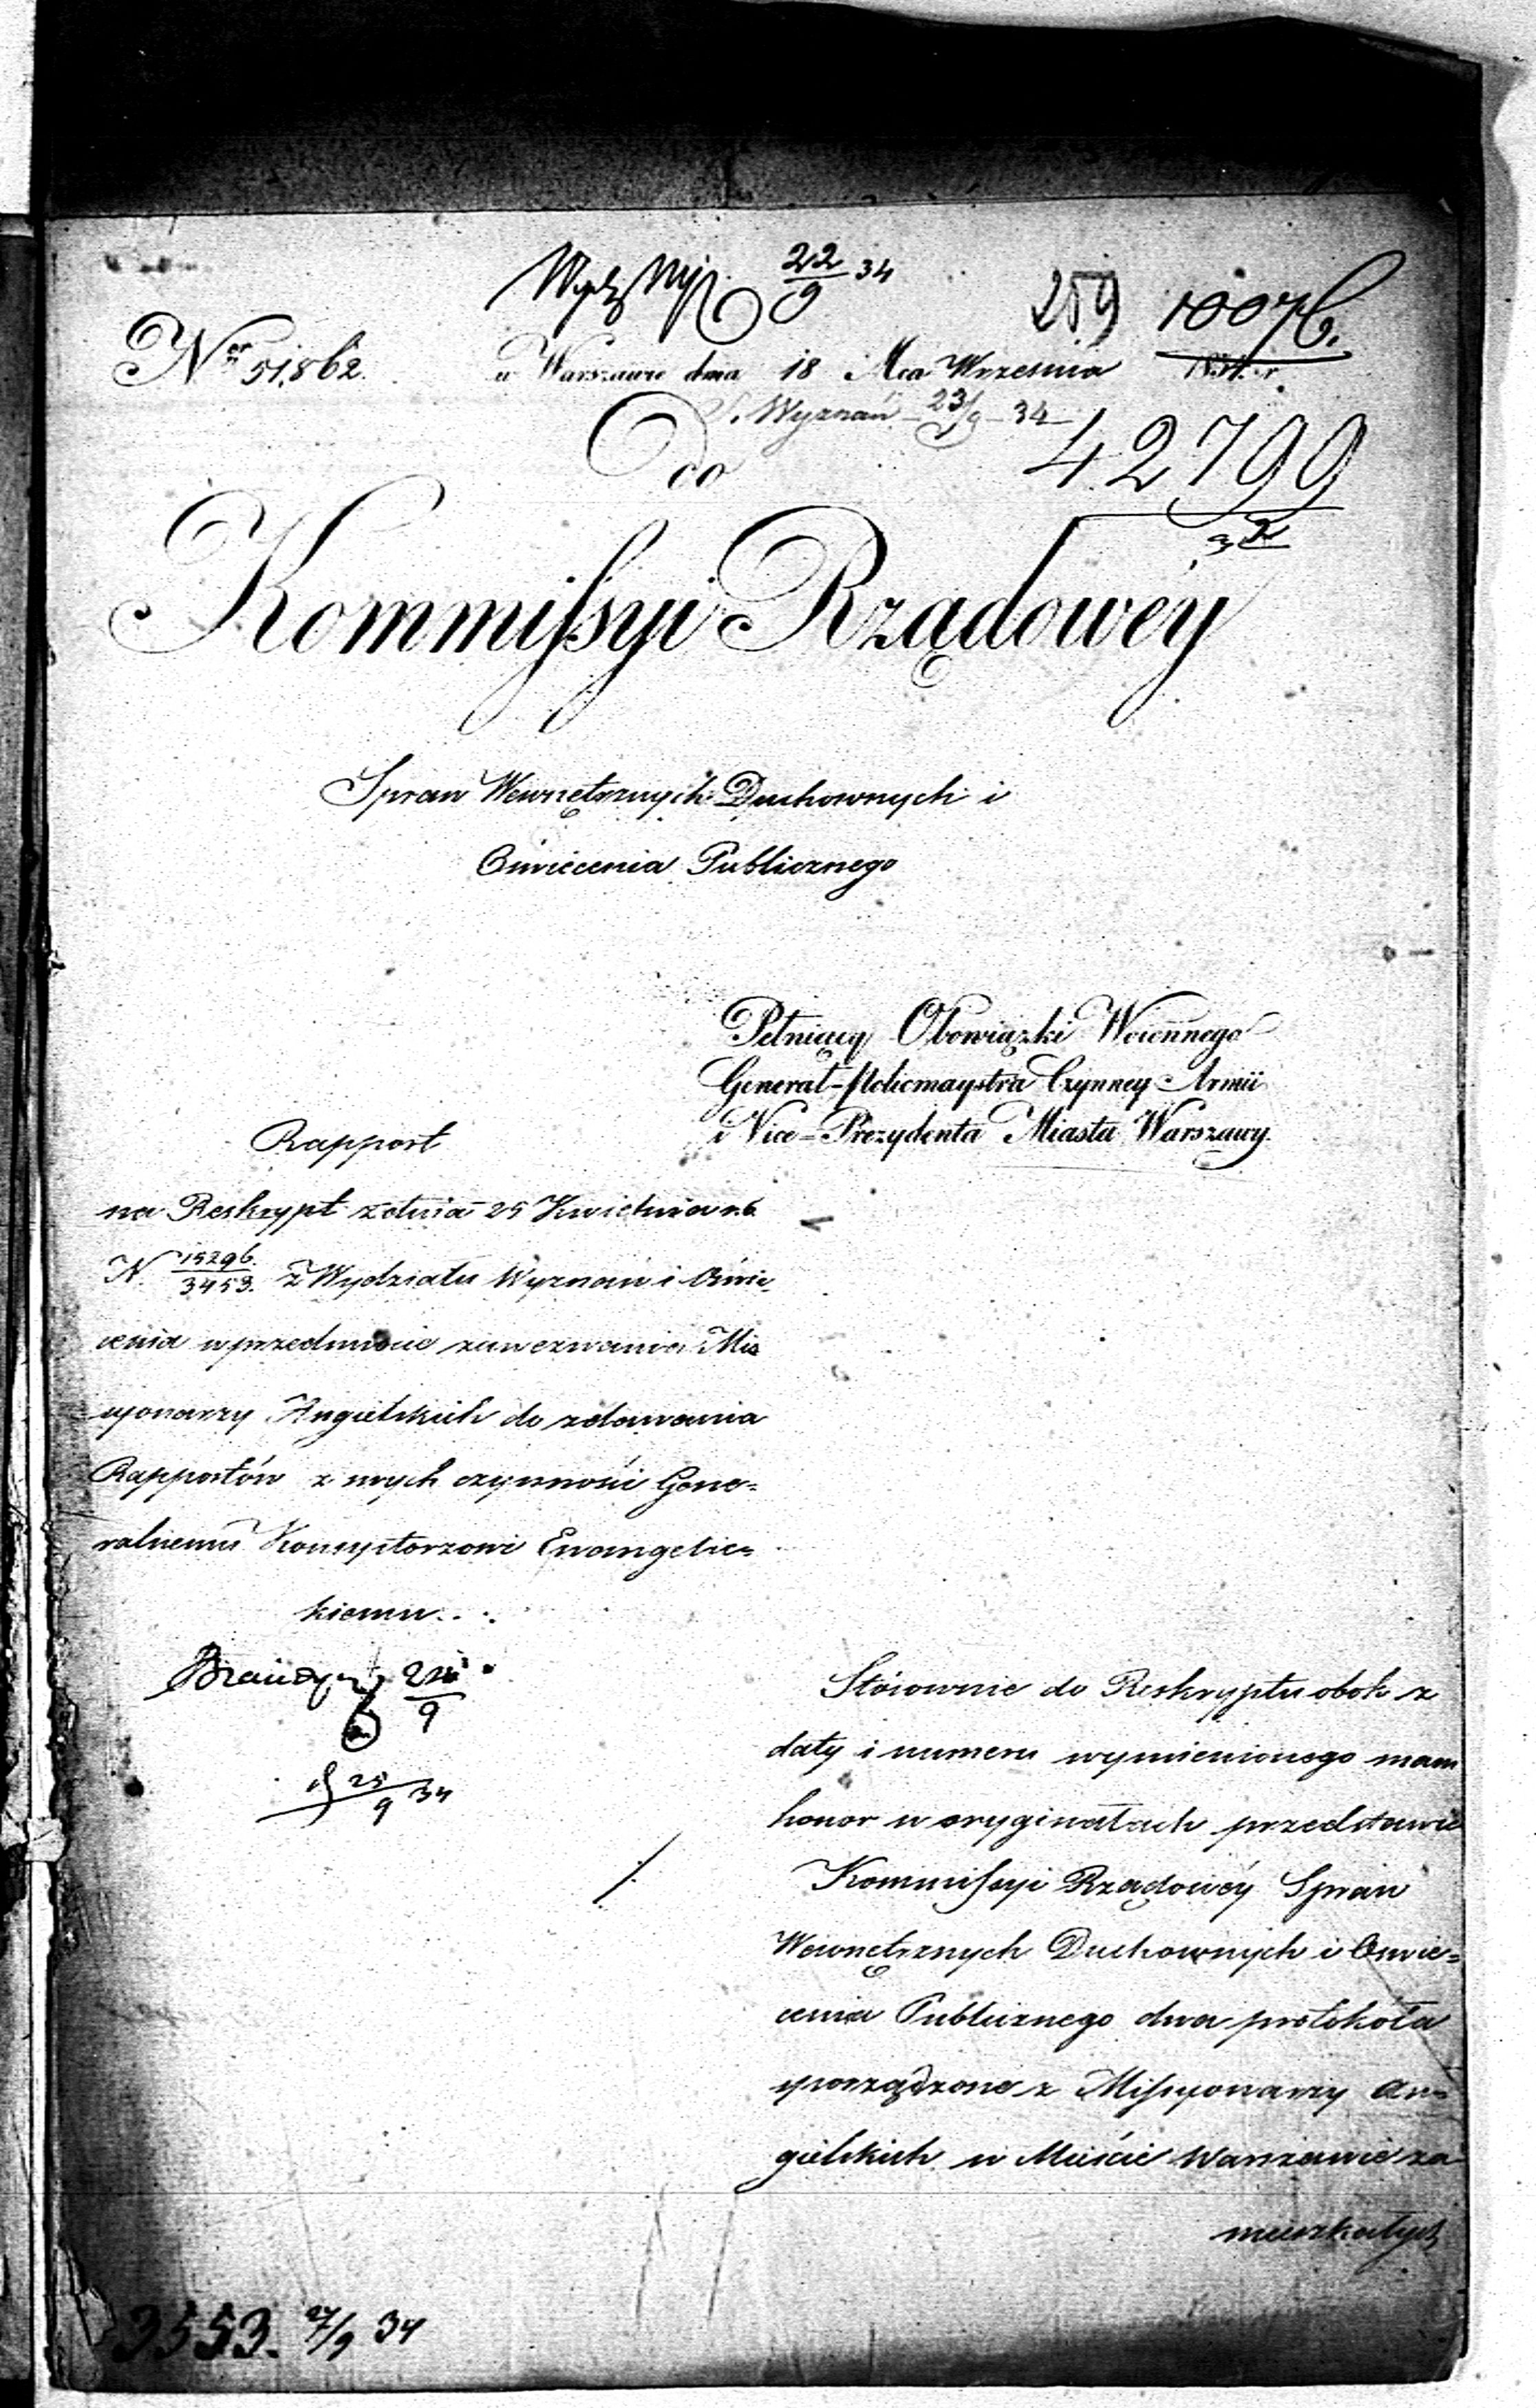 22/9 34
259
10076.
Nro 51,862.
w Warszawie dnia 18 Mca Września 1834. r.
Wyznań 23/9 34
42799
Do
Kommissyi Rządowéy
Spraw Wewnętrznych Duchownych i
Oświecenia Publicznego
Pełniący Obowiązki Woiennego
Generał-Policmaystra Czynney Armii
i Vice-Prezydenta Miasta Warszawy.
Rapport
na Reskrypt z dnia 25 Kwietnia r.b.
N. 15296./3453. z Wydziału Wyznań i Oświe
cenia w przedmiocie zawezwania Mis
syonarzy Angielskich do zdawania
Rapportów z swych czynności Gene=
ralnemu Konsystorzowi Ewangelic=
kiemu.
25/9 34
Stósownie do Reskryptu obok z
daty i numeru wymienionego mam
honor w oryginałach przedstawić
Kommissyi Rządowéy Spraw
Wewnętrznych Duchownych i Oświe=
cenia Publicznego dwa protokóła
sporządzone z Missyonarzy An=
gielskich w Mieście Warszawie za
mieszkałych
3553. 27/9 34